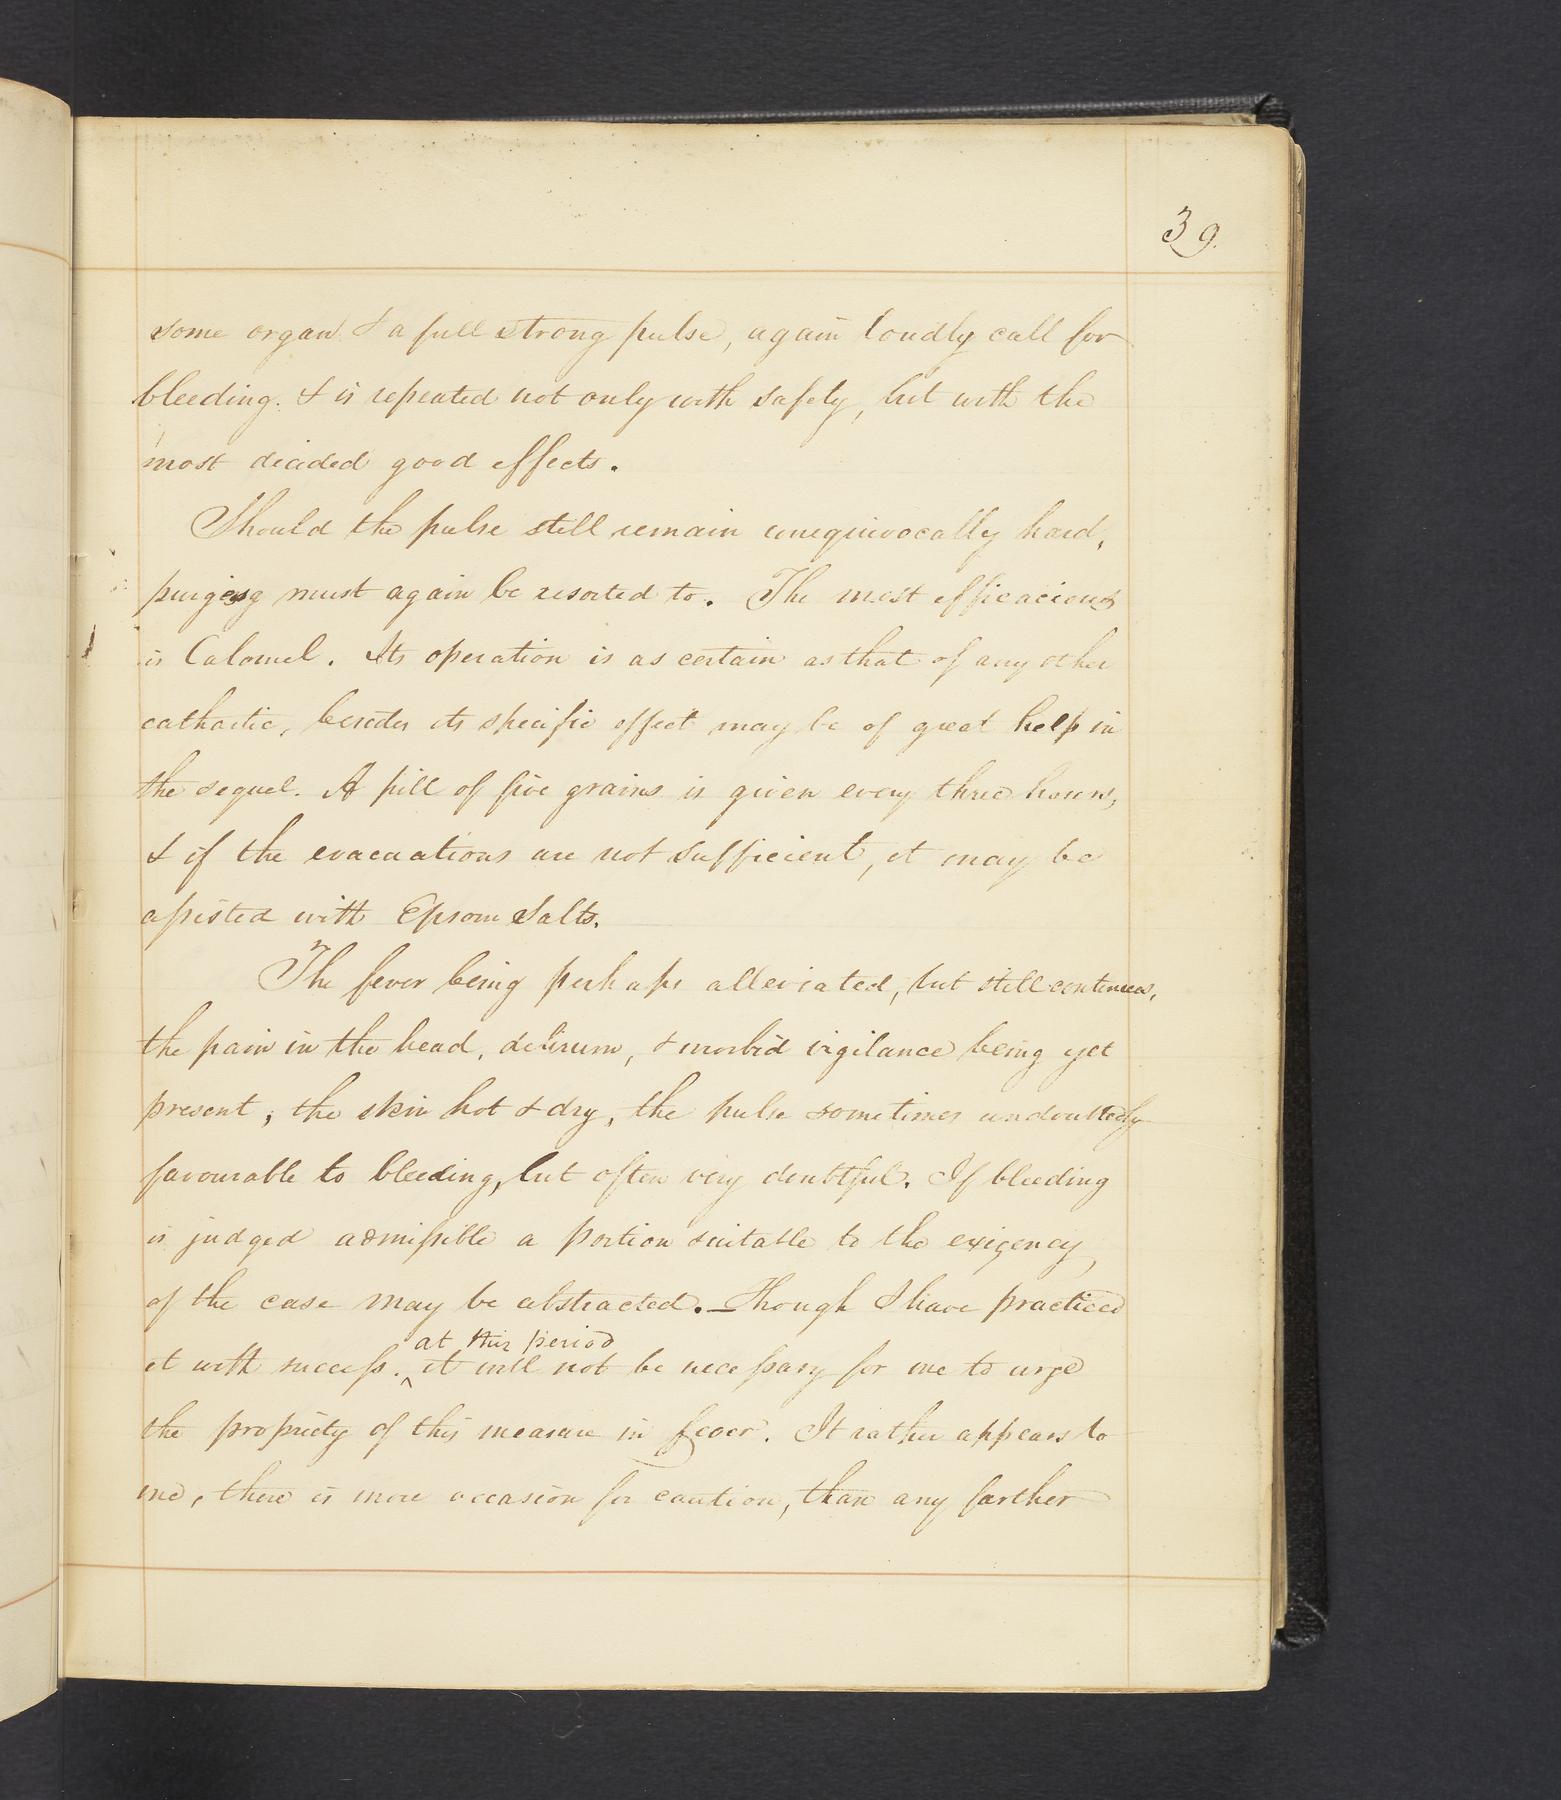 39.
some organ & a full strong pulse, again loudly call for
bleeding. & is repeated not only with safety, but with the
most decided good effects.
Should the pulse still remain unequivocally hard,
purging must again be resorted to. The most efficacious
is Calomel. Its operation is as certain as that of any other
cathartic, besides its specific effect may be of great help in
the sequel. A pill of five grains is given every three hours,
& if the evacuations are not sufficient, it may be
assisted with Epsom Salts.
The fever being perhaps alleviated, but still continues,
the pain in the head, delirium, & morbid vigilance being yet
present, the skin hot & dry, the pulse sometimes undoubtedly
favourable to bleeding, but often very doubtful. If bleeding
is judged admissible a portion suitable to the exigency,
of the case may be abstracted. — Though I have practiced
at this period
it with success. ^ it will not be necessary for me to urge
the propriety of this measure in fever. It rather appears to
me, there is more occasion for caution, than any farther